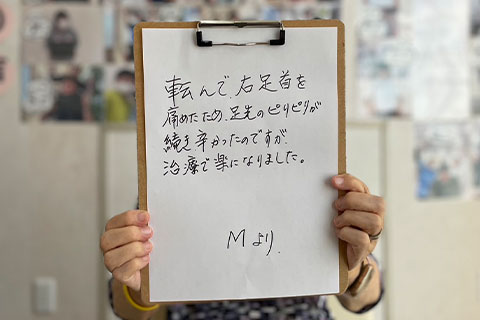 転んで、右足首を
痛めたため、足先のピリピリが
続き辛かったのですが、
治療で楽になりました。
Mより.